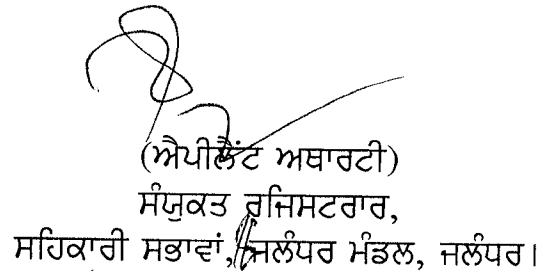 (ਐਪੀਲੈਂਟ ਅਥਾਰਟੀ)
ਸੰਯੁਕਤ ਰਜਿਸਟਰਾਰ,
ਸਹਿਕਾਰੀ ਸਭਾਵਾਂ, ਜਲੰਧਰ ਮੰਡਲ, ਜਲੰਧਰ।